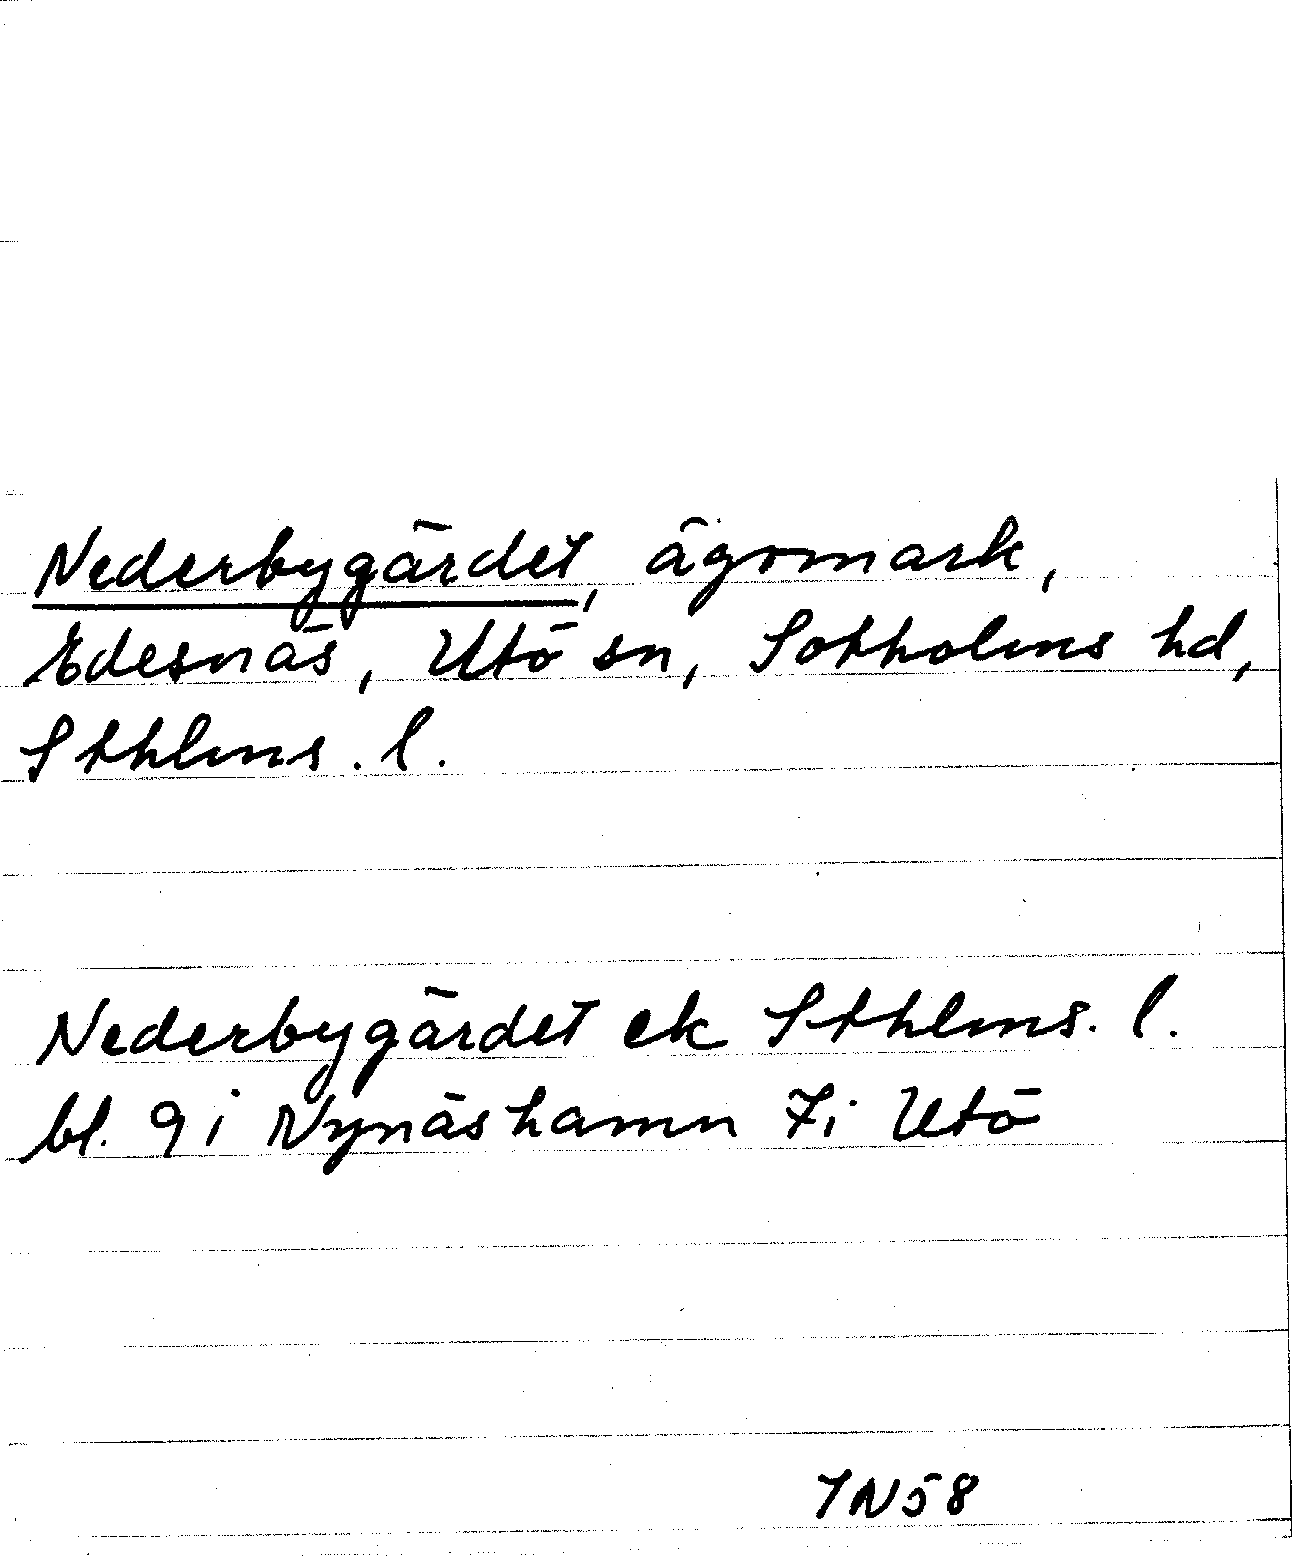 Nederbygärdet, ägomark,
Edesnäs, Utö sn, Sotholms hd,
Sthlms. l.
Nederbygärdet ek Sthlms. l.
bl. 9 i Nynäshamn 7i Utö
7N58